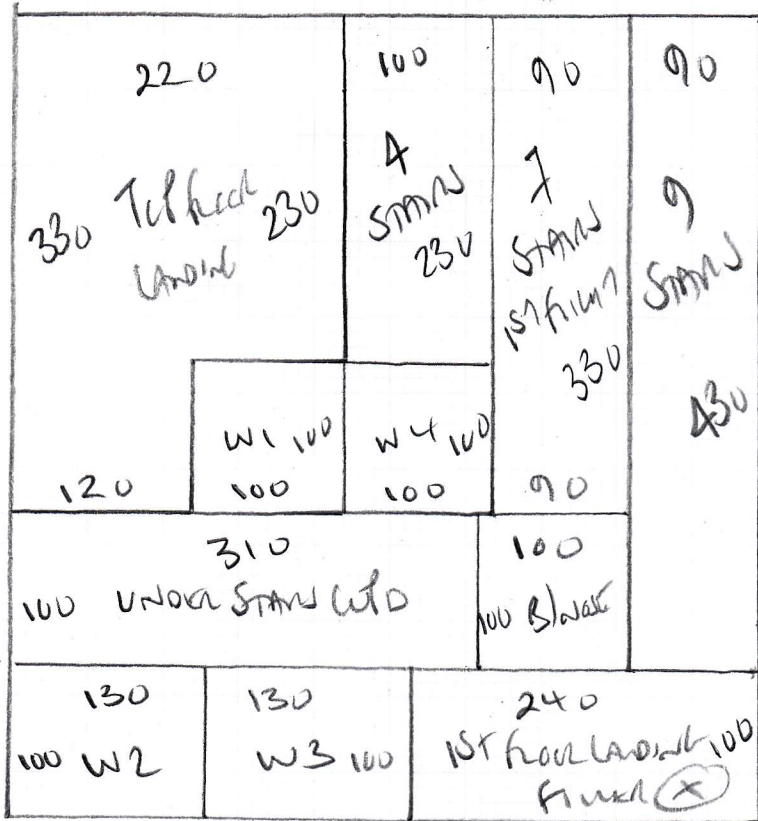 220
330 Top floor 230
LANDING
120
100
4
STAIRS
230
90
7
STAIRS
1ST FLIGHT
330
90
90
9
STAIRS
430
W1 100
100
W4 100
100
310
100 UNDER STAIRS CUPD
100
100
130
100 W2
130
W3 100
240
1ST FLOOR LANDING 100
X